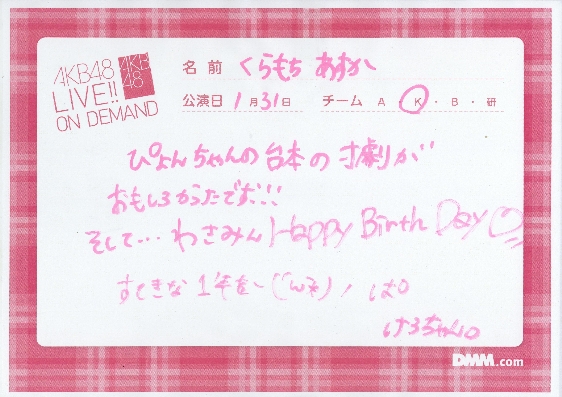 AKB48
LIVE!!
ON DEMAND
AKB
48
名前 くらもち あすか
公演日 1月31日 チーム A・K・B・研
ぴょんちゃんの台本の寸劇が
おもしろかったです!!!
そして…わさみんHappy Birth Day♡
すてきな1年を〜
けろちゃん。
DMM.com